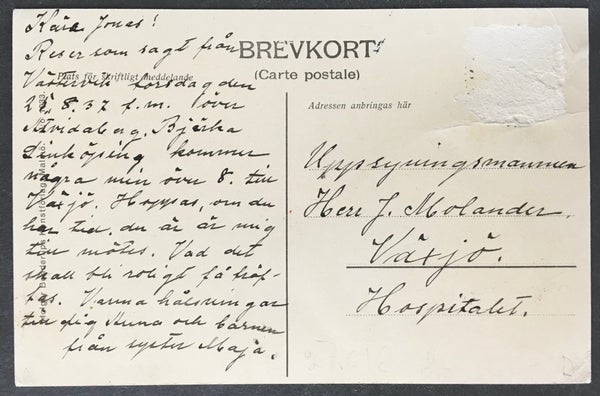 BREVKORT
(Carte postale)
Plats för skriftligt meddelande
Adressen anbringas här
Kära Jonas!
Reser som sagt från
Västervik torsdag den
8.37 f.m. över
Åtvidaberg, Bjärka
Linköping kommer
några min över 8. till
Växjö. Hoppas, om du
har tid, du är är mig
till mötes. Vad det
skall bli roligt få träf-
fas. Varma hälsningar
till dig Anna och barnen
från syster Maja.
Uppsyningsmannen
Herr J. Molander.
Växjö.
Hospitalet.